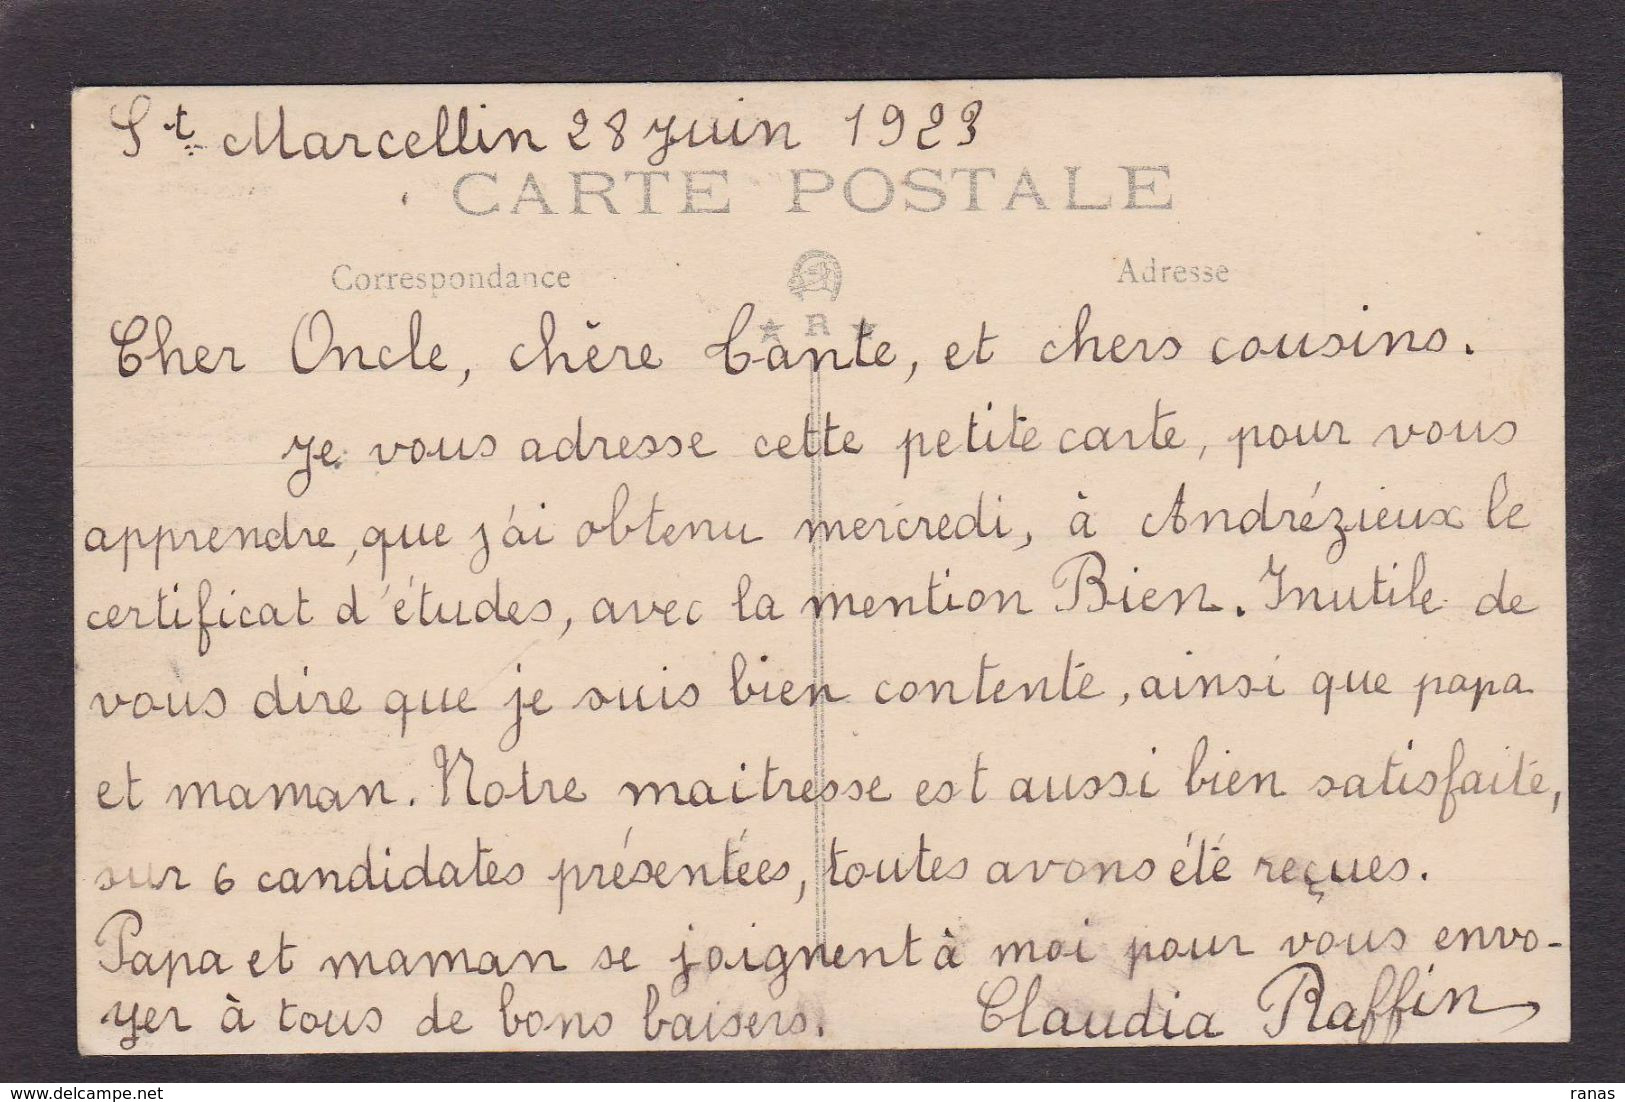 St. Marcellin 28 Juin 1923
CARTE POSTALE
Correspondance
Adresse
R
Cher Oncle, chère Tante, et chers cousins.
Je vous adresse cette petite carte, pour vous
apprendre, que j'ai obtenu mercredi, à Andrézieux le
certificat d'études, avec la mention Bien. Inutile de
vous dire que je suis bien contente, ainsi que papa
et maman. Notre maitresse est aussi bien satisfaite,
sur 6 candidates présentées, toutes avons été reçues.
Papa et maman se joignent à moi pour vous envo-
yer à tous de bons baisers. Claudia Raffin
www.delcampe.net
ranas